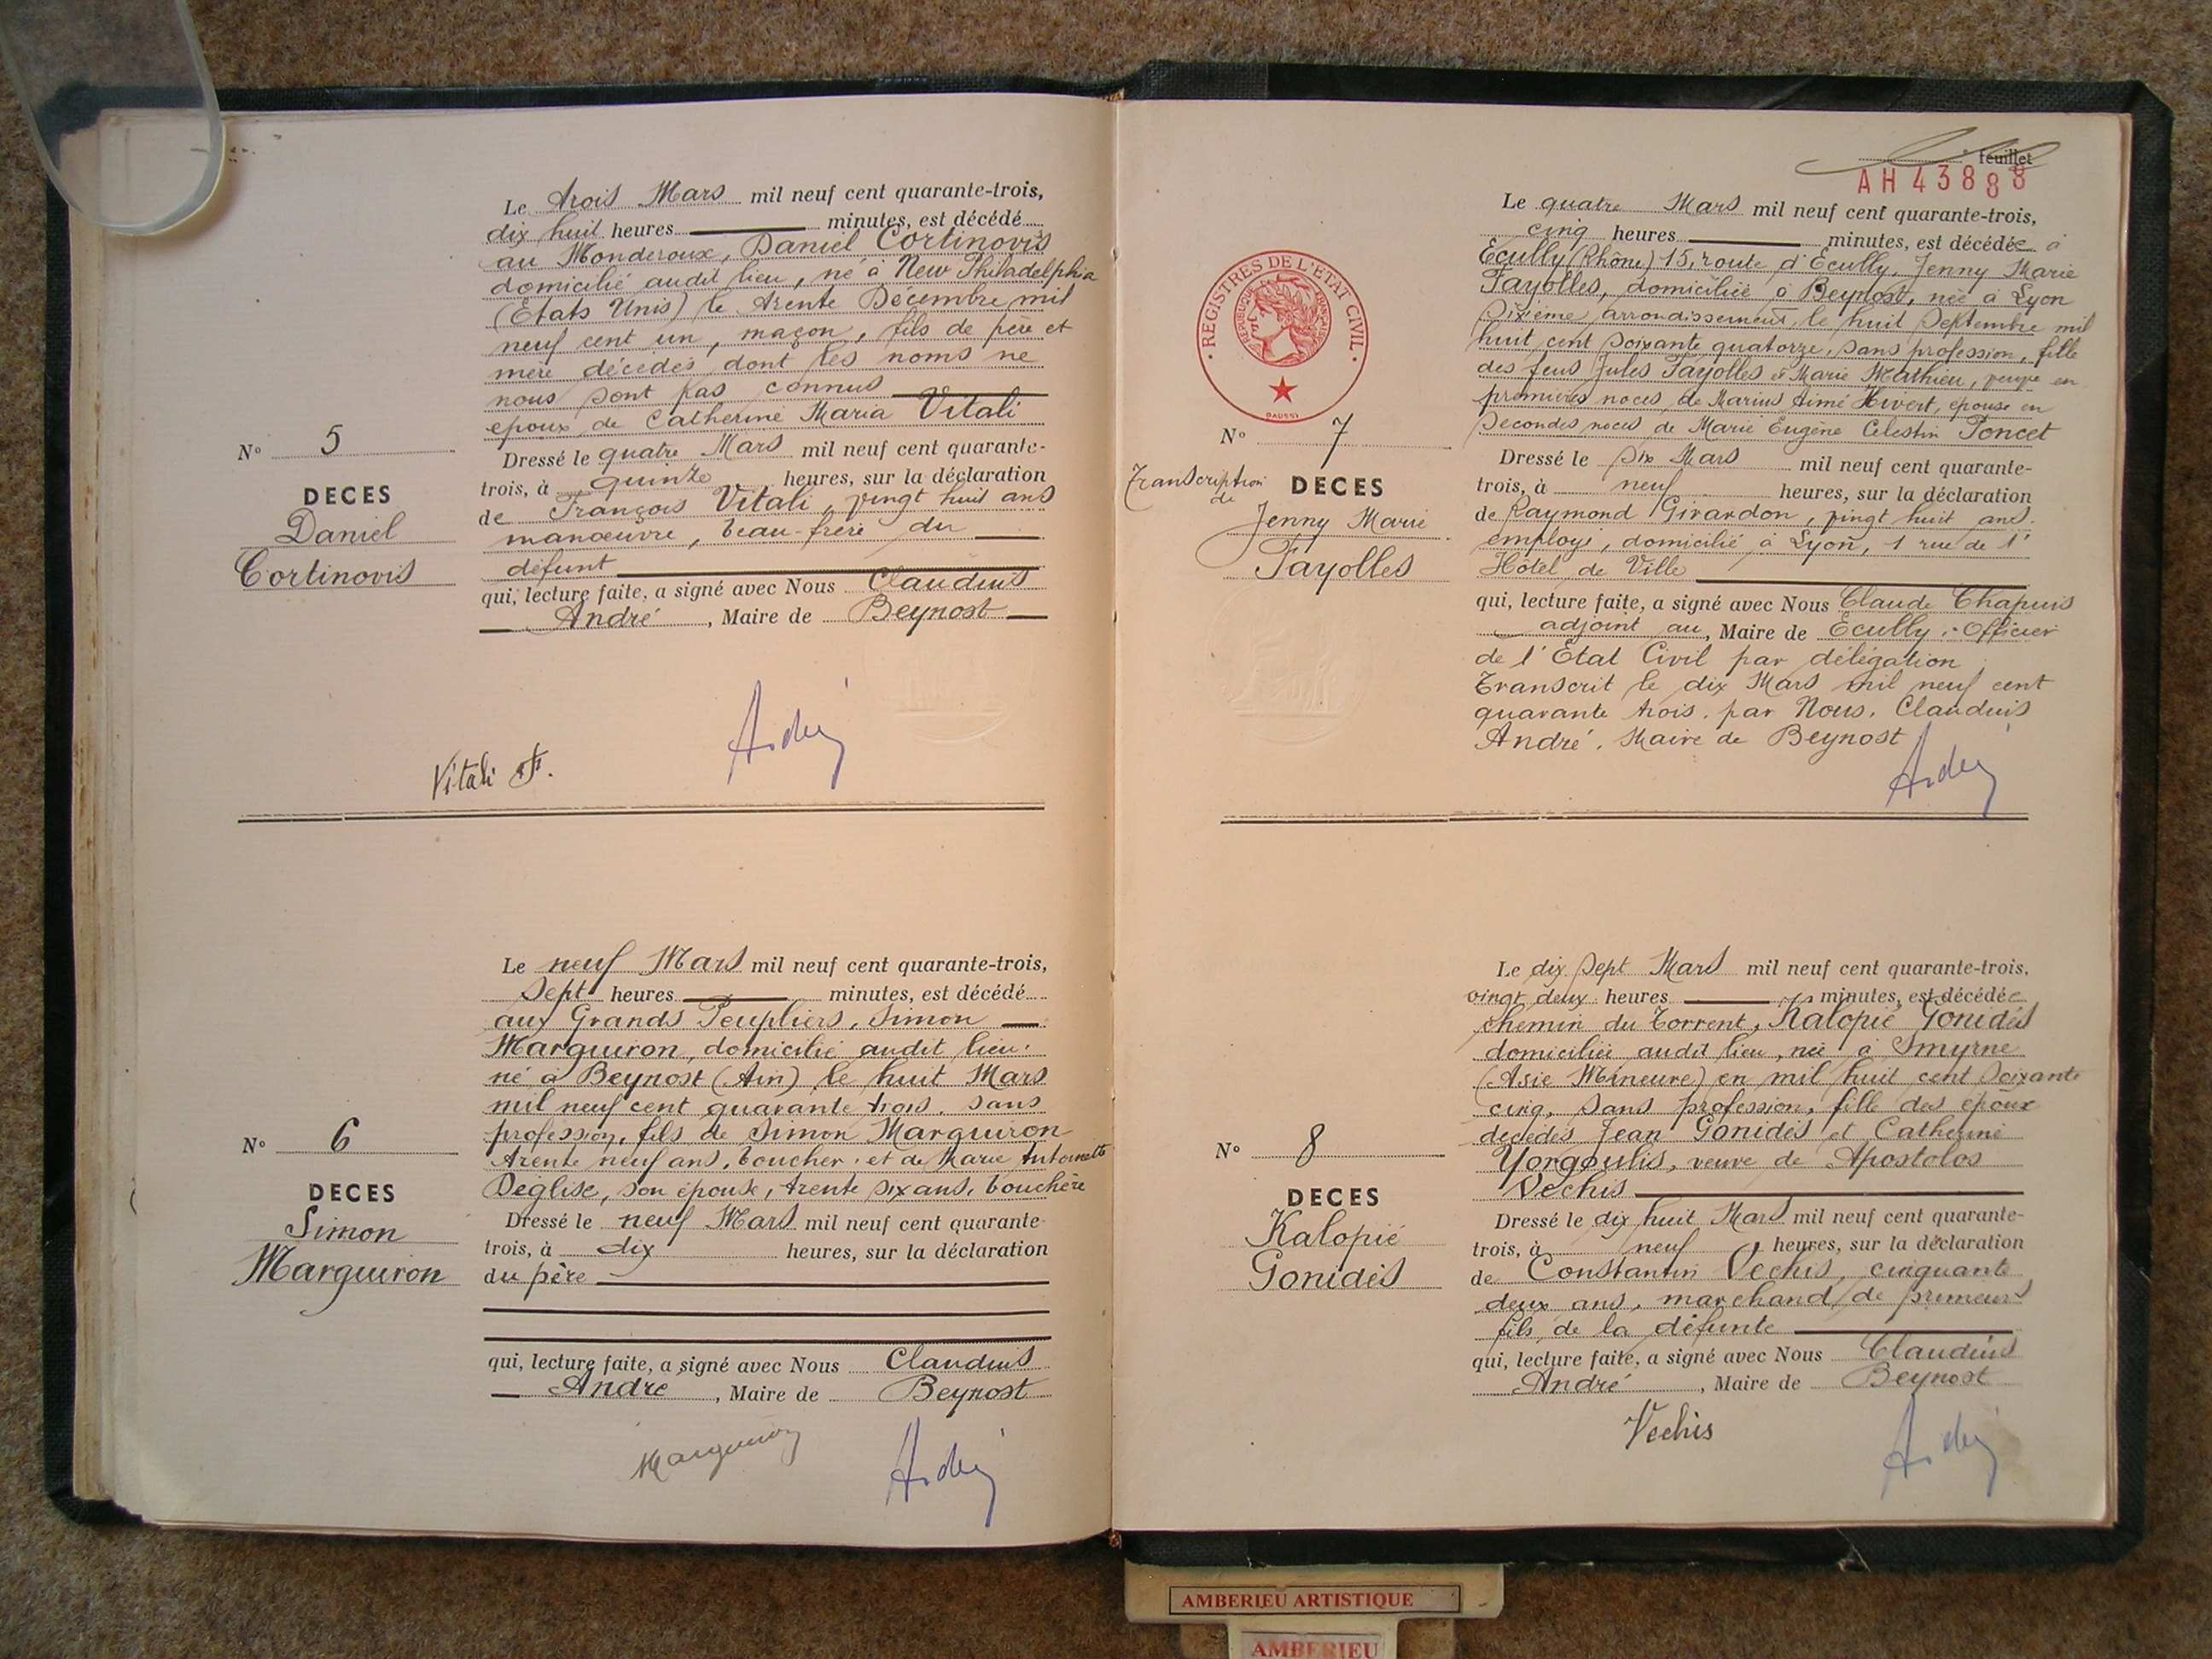 Le trois Mars mil neuf cent quarante-trois,
dix huit heures minutes, est décédé
au Monderoux, Daniel Cortinovis
domicilié audit lieu, né à New Philadelphia
(Etats Unis) le trente Décembre mil
neuf cent un, maçon, fils de père et
mère décédés dont les noms ne
nous sont pas connus
époux de Catherine Maria Vitali
N° 5
DECES
Daniel
Cortinovis
Dressé le quatre Mars mil neuf cent quarante-
trois, à quinze heures, sur la déclaration
de François Vitali, vingt huit ans
manœuvre, beau-frère du
défunt
qui, lecture faite, a signé avec Nous Claudius
André, Maire de Beynost
Vitali F.
André
Le neuf Mars mil neuf cent quarante-trois,
sept heures minutes, est décédé
aux Grands Peupliers, Simon
Marguiron, domicilié audit lieu.
né à Beynost (Ain) le huit Mars
mil neuf cent quarante trois. sans
profession, fils de Simon Marguiron
trente neuf ans, boucher. et de Marie Antoinette
Déglise, son épouse, trente six ans, bouchère
N° 6
DECES
Simon
Marguiron
Dressé le neuf Mars mil neuf cent quarante-
trois, à dix heures, sur la déclaration
du père
qui, lecture faite, a signé avec Nous Claudius
André, Maire de Beynost
Marguiron
André
feuillet
AH 43888
REGISTRES DE L'ETAT CIVIL
REPUBLIQUE FRANÇAISE
DAUSSY
Le quatre Mars mil neuf cent quarante-trois,
cinq heures minutes, est décédée à
Ecully (Rhône) 15, route d'Ecully, Jenny Marie
Fayolles, domiciliée à Beynost, née à Lyon
sixième arrondissement, le huit septembre mil
huit cent soixante quatorze, sans profession, fille
des feus Jules Fayolles et Marie Mathieu, veuve en
premières noces de Marius Aimé Hivert, épouse en
secondes noces de Marie Eugène Célestin Poncet
N° 7
Transcription
de
DECES
Jenny Marie
Fayolles
Dressé le six Mars mil neuf cent quarante-
trois, à neuf heures, sur la déclaration
de Raymond Girardon, vingt huit ans.
employé, domicilié à Lyon, 1 rue de l'
Hôtel de Ville
qui, lecture faite, a signé avec Nous Claude Chapuis
adjoint au, Maire de Ecully. Officier
de l'Etat Civil par délégation
Transcrit le dix Mars mil neuf cent
quarante trois. par Nous, Claudius
André. Maire de Beynost
André
Le dix sept Mars mil neuf cent quarante-trois,
vingt deux heures minutes, est décédée
chemin du Torrent, Kalopié Gonidès
domiciliée audit lieu, née à Smyrne
(Asie Mineure) en mil huit cent soixante
cinq, sans profession, fille des époux
décédés Jean Gonidès et Catherine
Yorgoulis, veuve de Apostolos
Vechis
N° 8
DECES
Kalopié
Gonidès
Dressé le dix huit Mars mil neuf cent quarante-
trois, à neuf heures, sur la déclaration
de Constantin Vechis, cinquante
deux ans, marchand de primeurs
fils de la défunte
qui, lecture faite, a signé avec Nous Claudius
André, Maire de Beynost
Vechis
André
AMBERIEU ARTISTIQUE
AMBERIEU